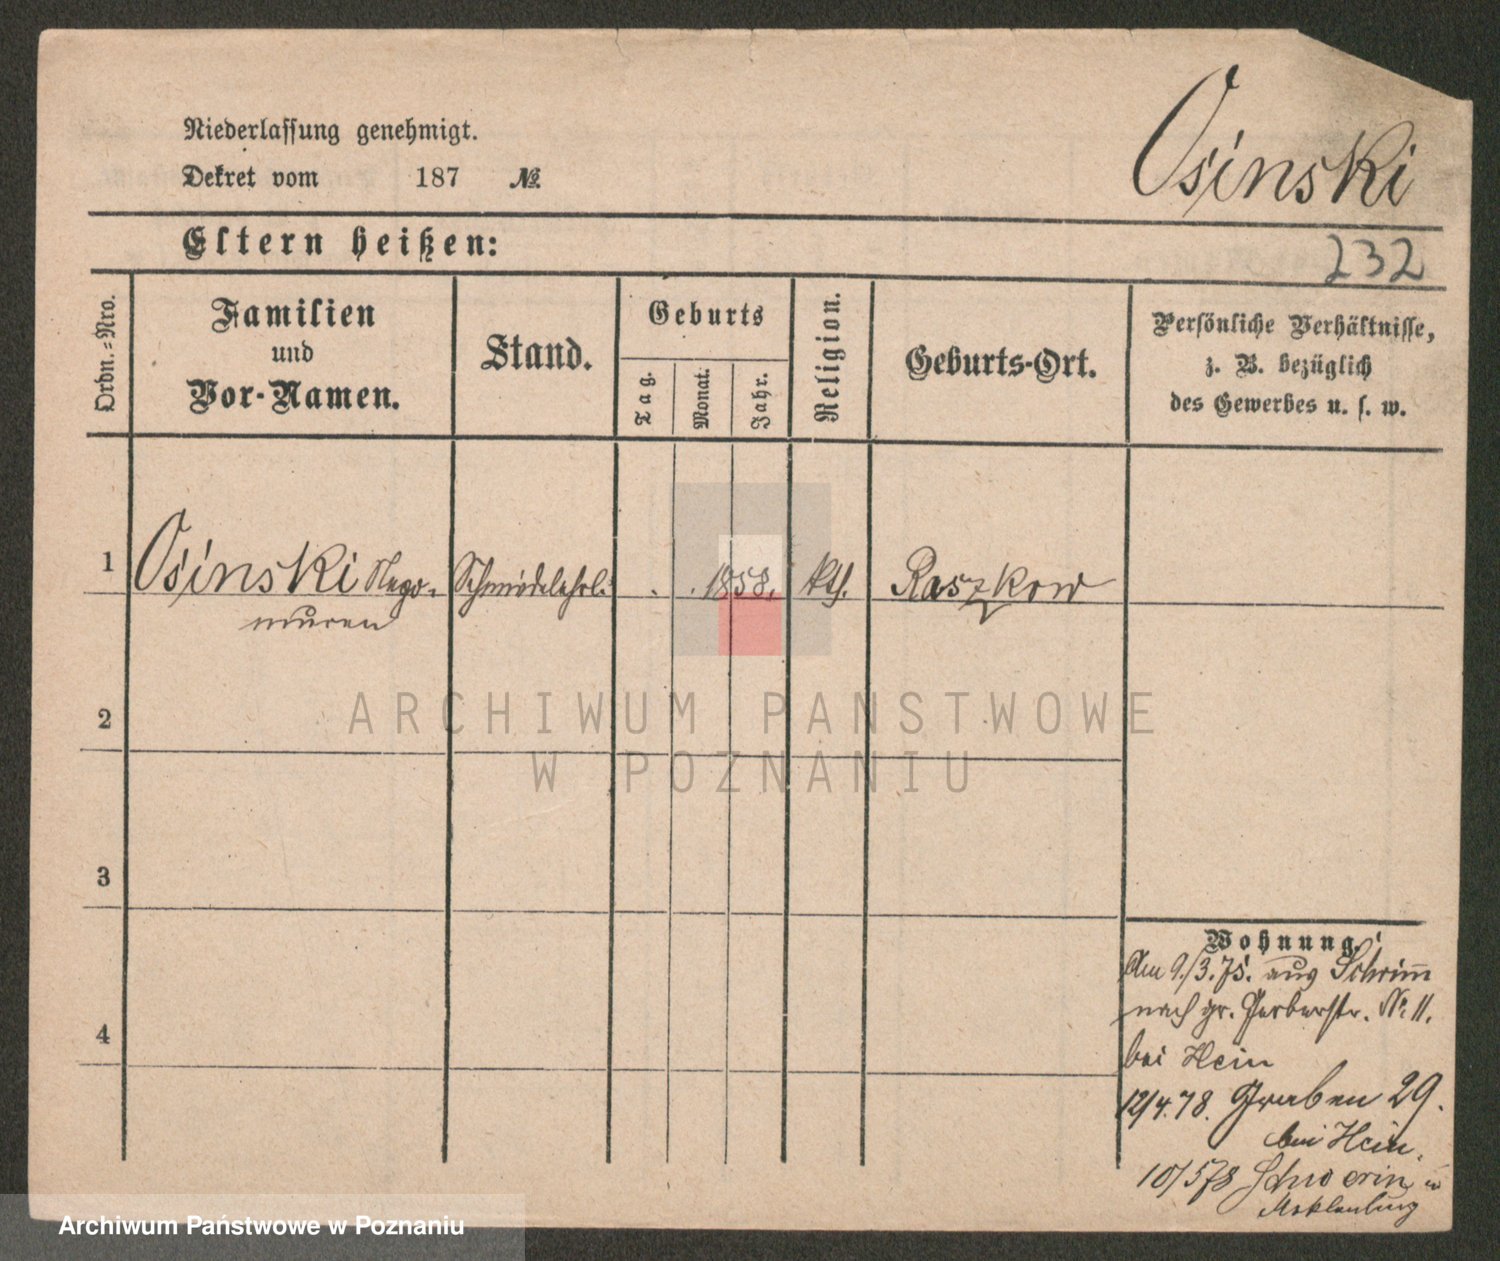 Niederlassung genehmigt.
Dekret vom 187 №
Osinski
Eltern heißen:
232
Ordn.-Nro.
Familien
und
Vor-Namen.
Stand.
Geburts
Tag.
Monat.
Jahr.
Religion.
Geburts-Ort.
Persönliche Verhältnisse,
z. B. bezüglich
des Gewerbes u. s. w.
1 Osinski Schmiedelehrl. . . 1858. kth. Raszkow
2
3
4
Wohnung.
Am 9./3.75. aus Schrimm
nach gr. Gerberstr. No. 11.
bei Hein
12/4.78. Graben 29.
bei Hein.
10/5 78 Schwerin
Mecklenburg
ARCHIWUM PAŃSTWOWE
W POZNANIU
Archiwum Państwowe w Poznaniu